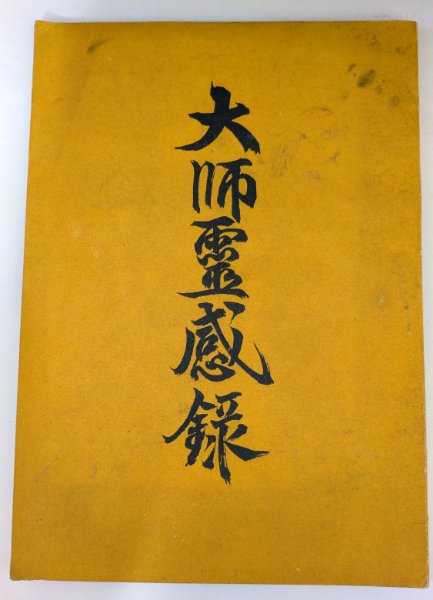 大师靈感録